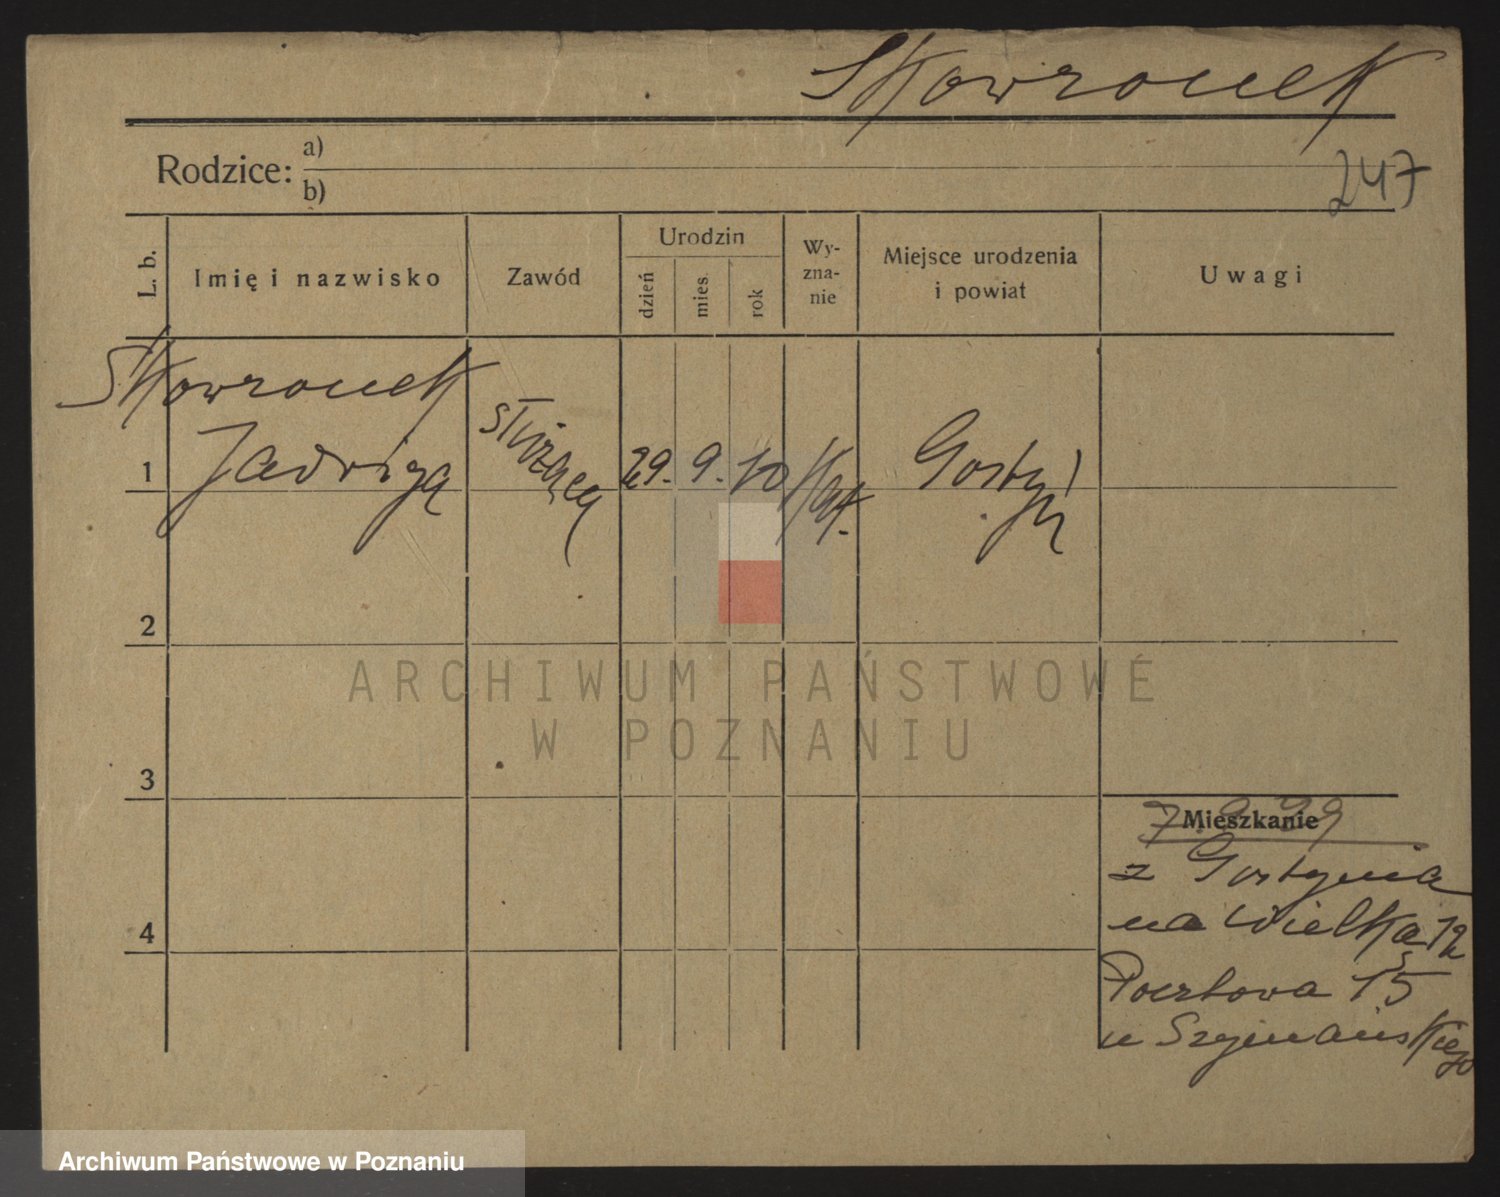 Skowronek
Rodzice: a)
b)
247
L. b.
Imię i nazwisko
Zawód
Urodzin
dzień
mies.
rok
Wy-
zna-
nie
Miejsce urodzenia
i powiat
Uwagi
Skowronek
1 Jadwiga służąca 29. 9. 10 Kat. Gostyń
2
3
4
Mieszkanie
z Gostynia
na Wielka 12
Pocztowa 15
u Szymańskiego
ARCHIWUM PAŃSTWOWE
W POZNANIU
Archiwum Państwowe w Poznaniu